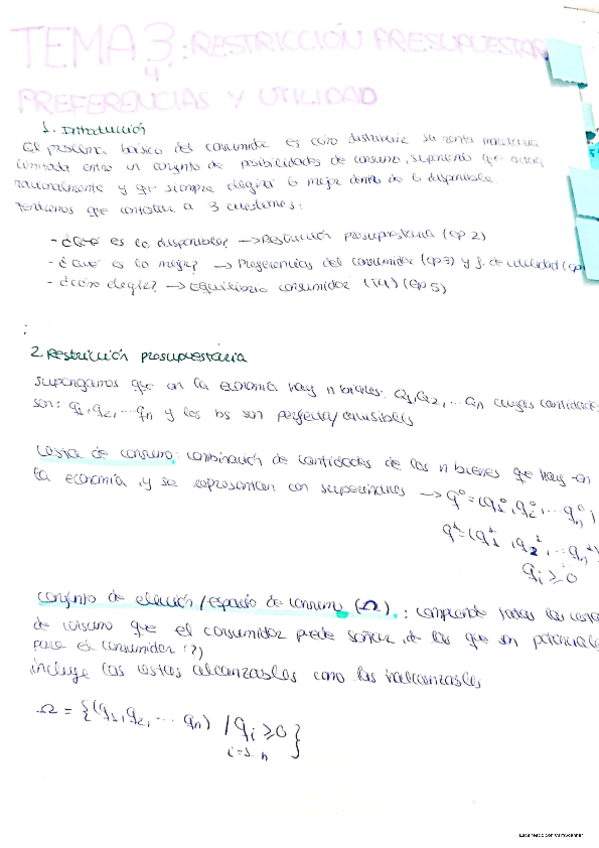 TEMA 3: RESTRICCIÓN PRESUPUESTAR
4
PREFERENCIAS Y UTILIDAD
1. Introducción
El problema básico del consumidor es cómo distribuir su renta monetaria
limitada entre un conjunto de posibilidades de consumo, suponiendo que actúa
racionalmente y que siempre elegirá lo mejor dentro de lo disponible.
Tendremos que contestar a 3 cuestiones:
- ¿Qué es lo disponible? → Restricción presupuestaria (cp 2)
- ¿Qué es lo mejor? → Preferencias del consumidor (cp 3) y f. de utilidad (cp
- ¿Cómo elegir? → Equilibrio consumidor (T4) (cp 5)
:
2. Restricción presupuestaria
Supongamos que en la economía hay n bienes: Q1, Q2, ... Qn cuyas cantidade
son: q1, q2, ... qn y los bs son perfecta/ divisibles
Cesta de consumo: combinación de cantidades de los n bienes que hay en
la economía y se representan con superíndices → q⁰ = (q1⁰, q2⁰, ... qn⁰)
q¹ = (q1¹, q2¹, ... qn¹)
qi ≥ 0
Conjunto de elección / espacio de consumo (Ω).: comprende todas las cestas
de consumo que el consumidor puede soñar, de las que son potenciale
para el consumidor (?)
incluye las cestas alcanzables como las inalcanzables
Ω = {(q1, q2, ... qn) / qi ≥ 0}
i=1..n